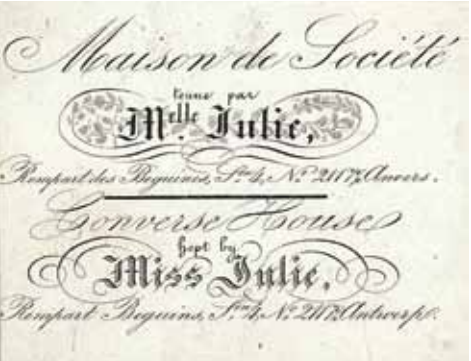 Maison de Société
tenue par
Melle Julie,
Rempart des Beguines, Son 4, No 2117, Anvers.
Converse House
kept by
Miss Julie,
Rempart Beguins, Son 4, No 2117, Antwerp.